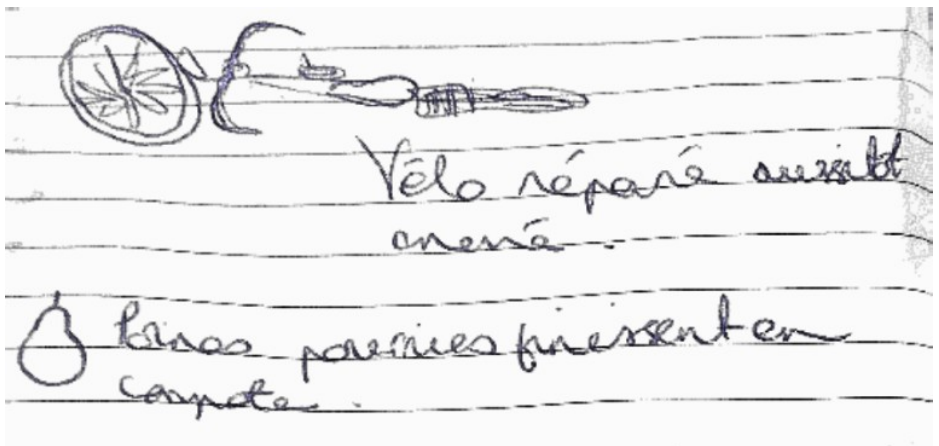 Vélo réparé aussitôt
amené.
Poires pourries finissent en
compote.